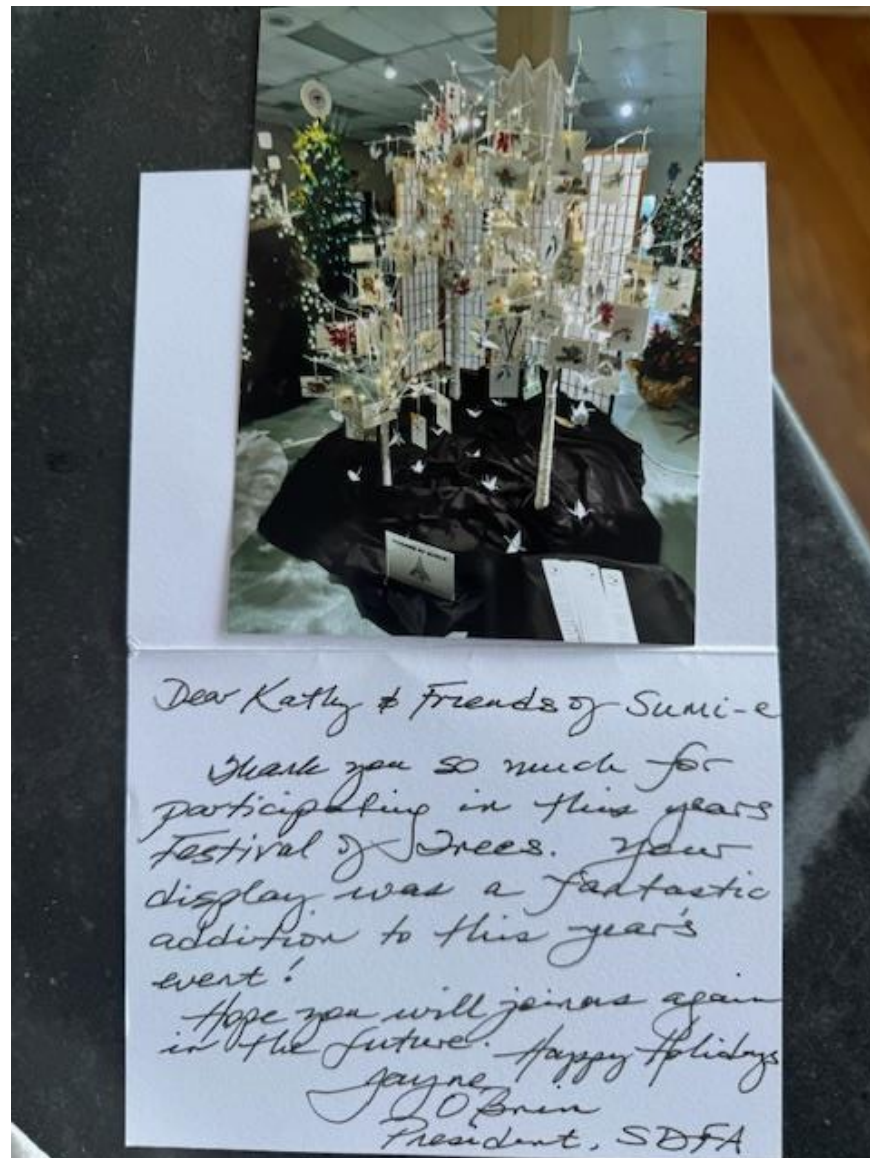 Dear Kathy & Friends of Sumi-e
Thank you so much for
participating in this years
Festival of Trees. Your
display was a fantastic
addition to this year's
event!
Hope you will join us again
in the future. Happy Holidays
Jayne
O'Brien
President, SDFA